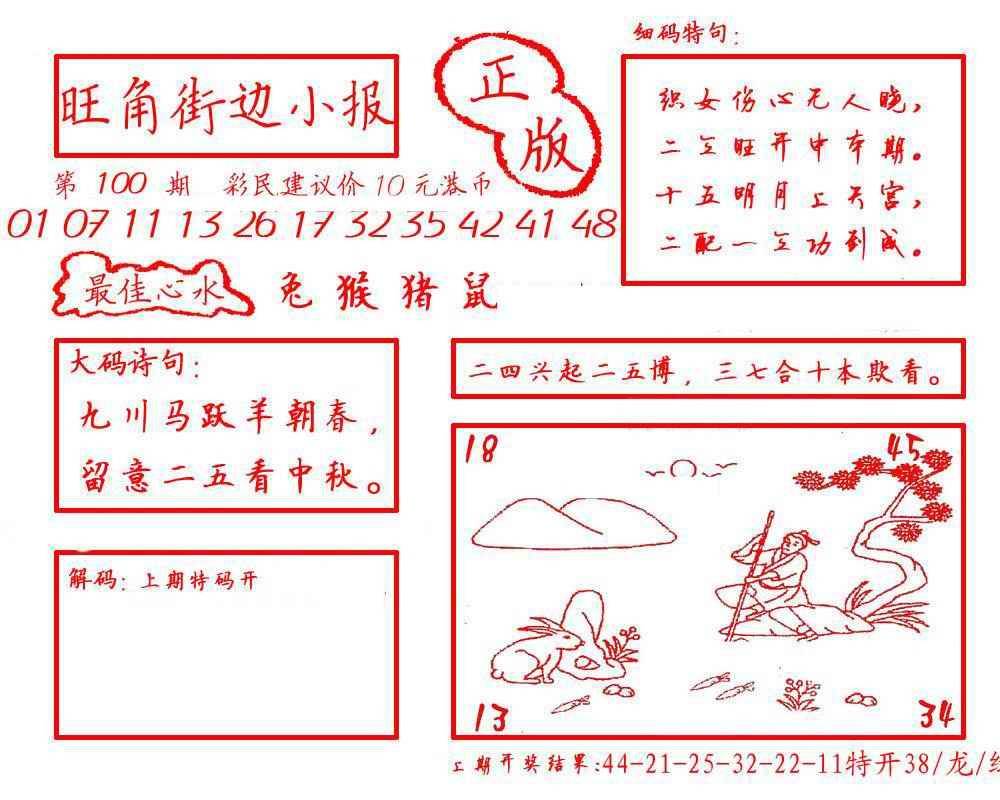 细码特句：
旺角街边小报
正
版
织女伤心无人晓，
二立旺开中本期。
十五明月上天宫，
二配一立功到成。
第 100 期 彩民建议价 10 元港币
01 07 11 13 26 17 32 35 42 41 48
最佳心水 兔 猴 猪 鼠
大码诗句：
九川马跃羊朝春，
留意二五看中秋。
二四兴起二五博，三七合十本欺看。
18
45
解码：上期特码开
13
34
上期开奖结果:44-21-25-32-22-11特开38/龙/